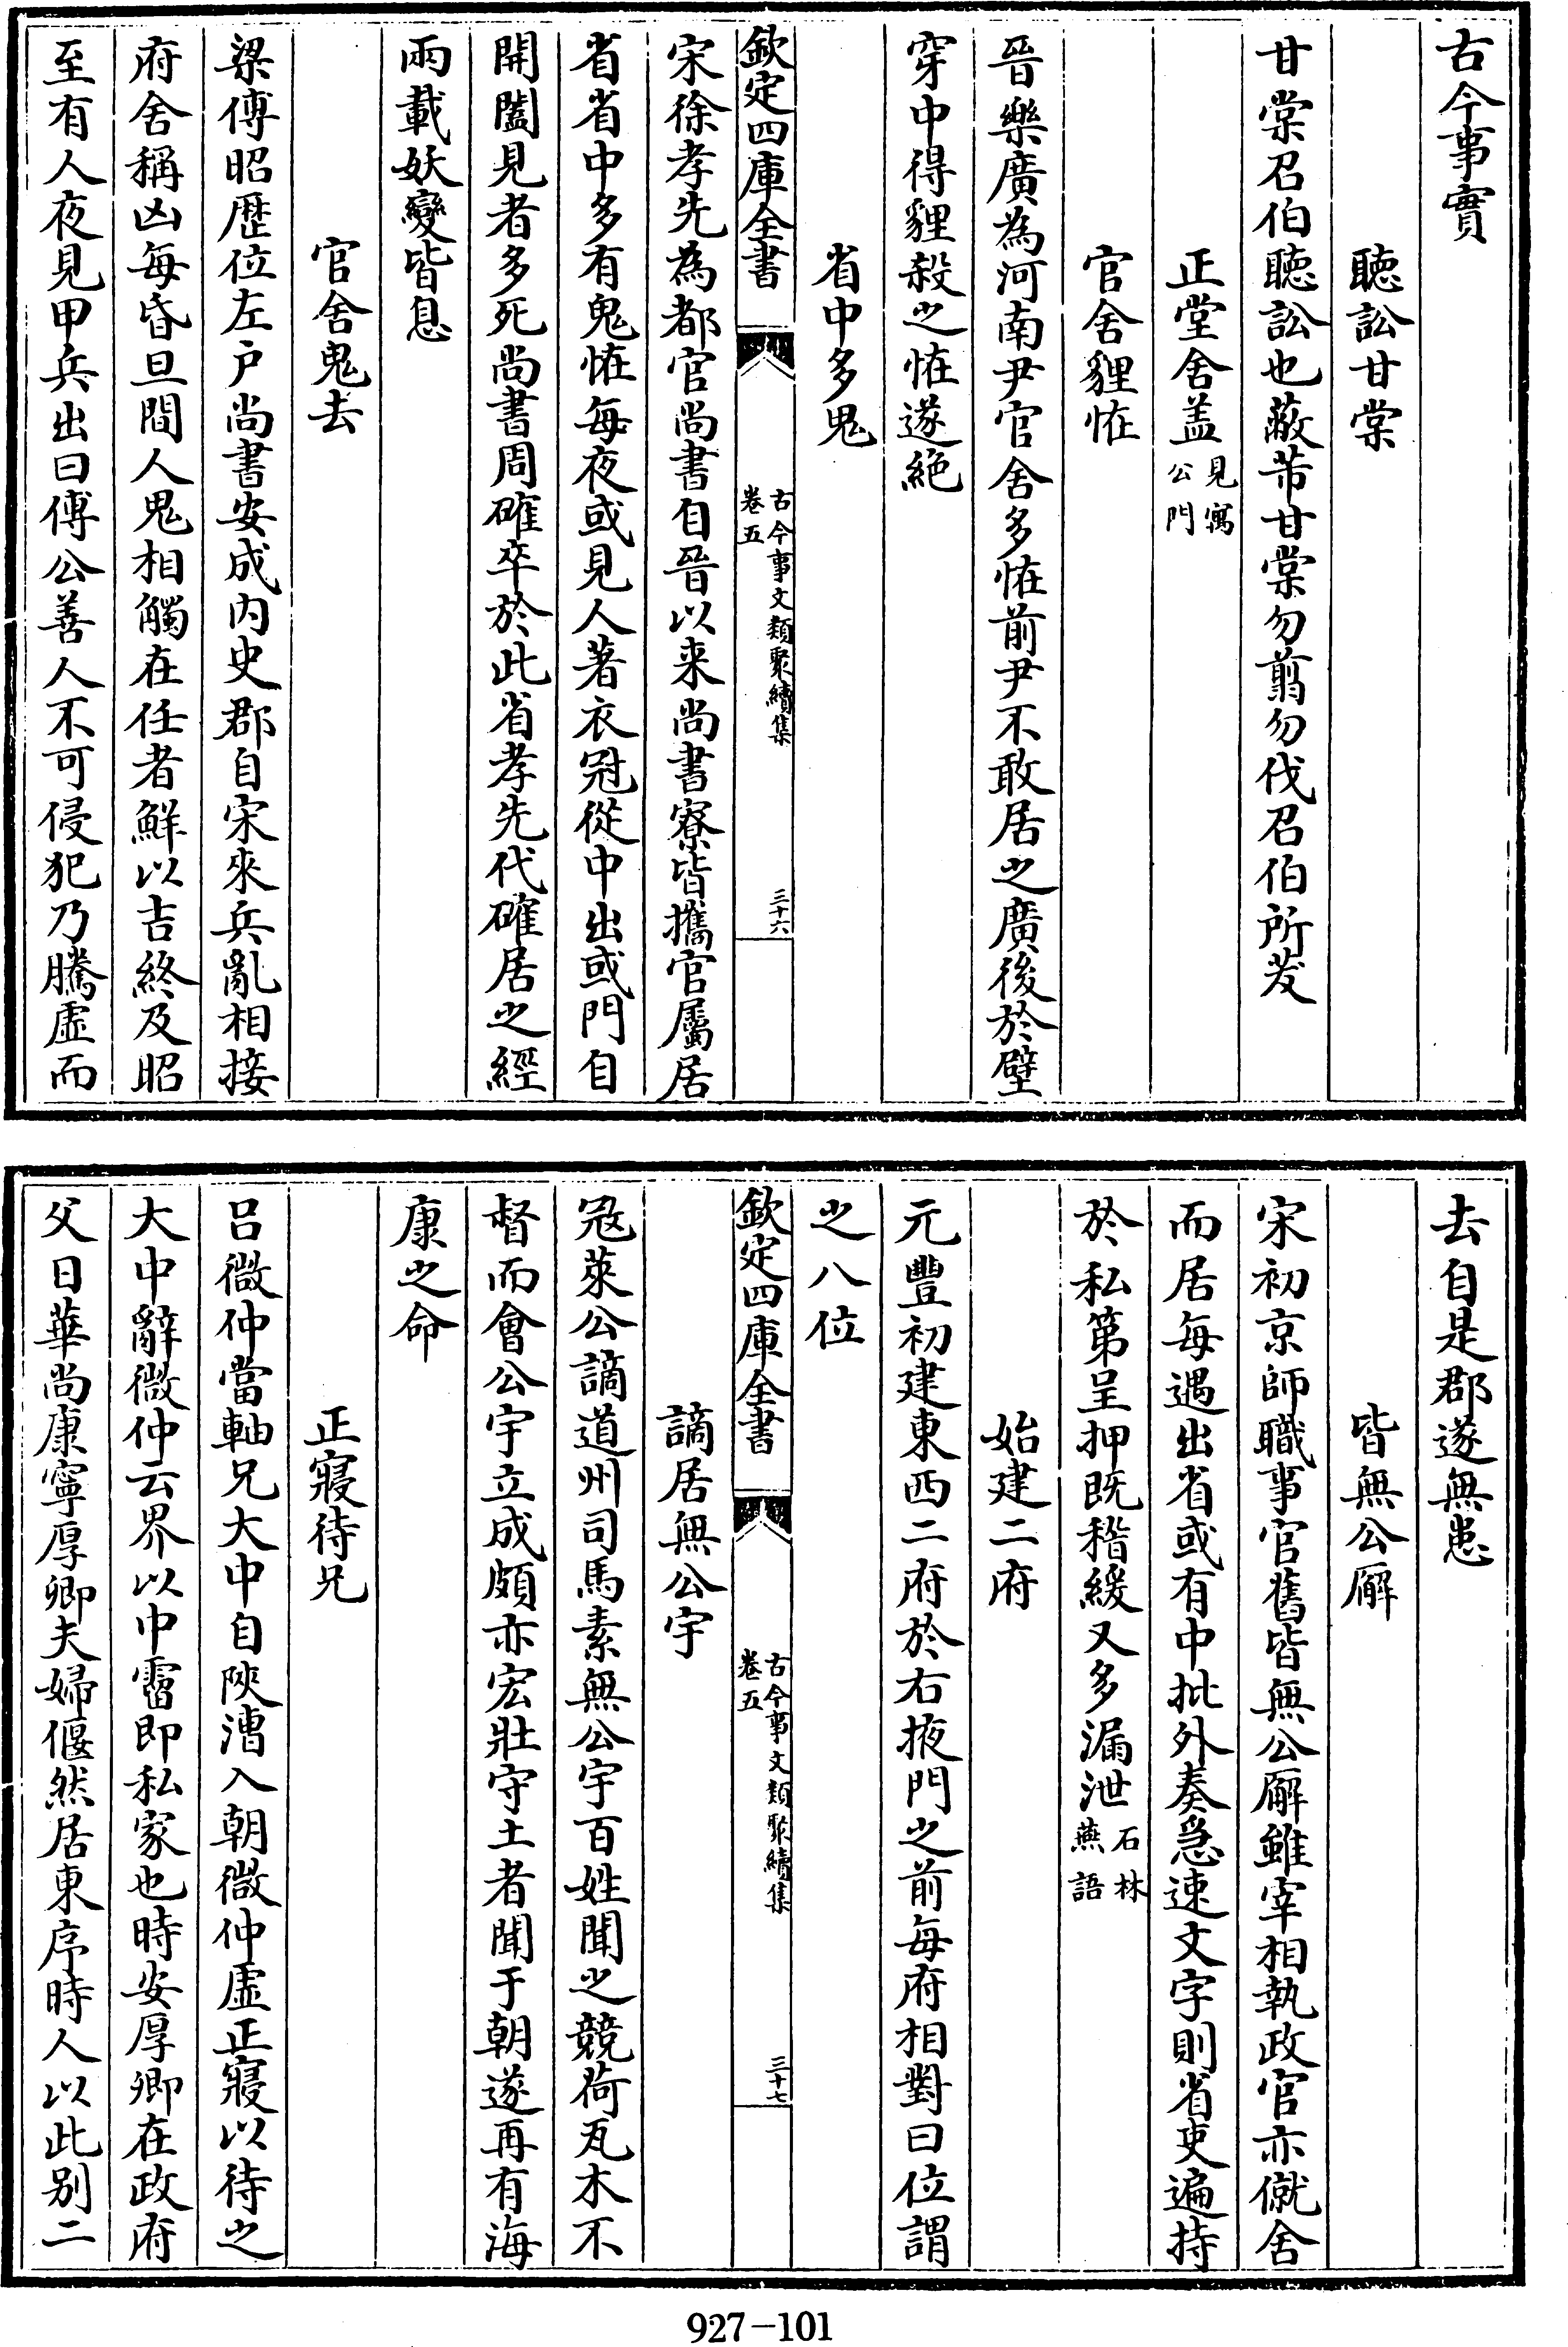 古今事實
聽訟甘棠
甘棠召伯聽訟也蔽芾甘棠勿翦勿伐召伯所茇
正堂舍盖見寓公門
官舍貍恠
晉樂廣為河南尹官舍多恠前尹不敢居之廣後於壁
穿中得貍殺之恠遂絶
省中多鬼
欽定四庫全書
古今事文類聚續集
卷五
三十六
宋徐孝先為都官尚書自晉以来尚書寮皆攜官屬居
省省中多有鬼恠每夜或見人著衣冠從中出或門自
開闔見者多死尚書周確卒於此省孝先代確居之經
兩載妖變皆息
官舍鬼去
梁傅昭歴位左户尚書安成内史郡自宋來兵亂相接
府舍稱凶每昏旦間人鬼相觸在任者鮮以吉終及昭
至有人夜見甲兵出曰傅公善人不可侵犯乃騰虚而
去自是郡遂無患
皆無公廨
宋初京師職事官舊皆無公廨雖宰相執政官亦僦舍
而居每遇出省或有中批外奏急速文字則省吏遍持
於私第呈押既稽緩又多漏泄石林燕語
始建二府
元豐初建東西二府於右掖門之前每府相對曰位謂
之八位
欽定四庫全書
古今事文類聚續集
卷五
三十七
謫居無公宇
冦萊公謫道州司馬素無公宇百姓聞之競荷瓦木不
督而會公宇立成頗亦宏壯守土者聞于朝遂再有海
康之命
正寢待兄
吕微仲當軸兄大中自陜漕入朝微仲虚正寢以待之
大中辭微仲云界以中霤即私家也時安厚卿在政府
父日華尚康寧厚卿夫婦偃然居東序時人以此别二
927-101